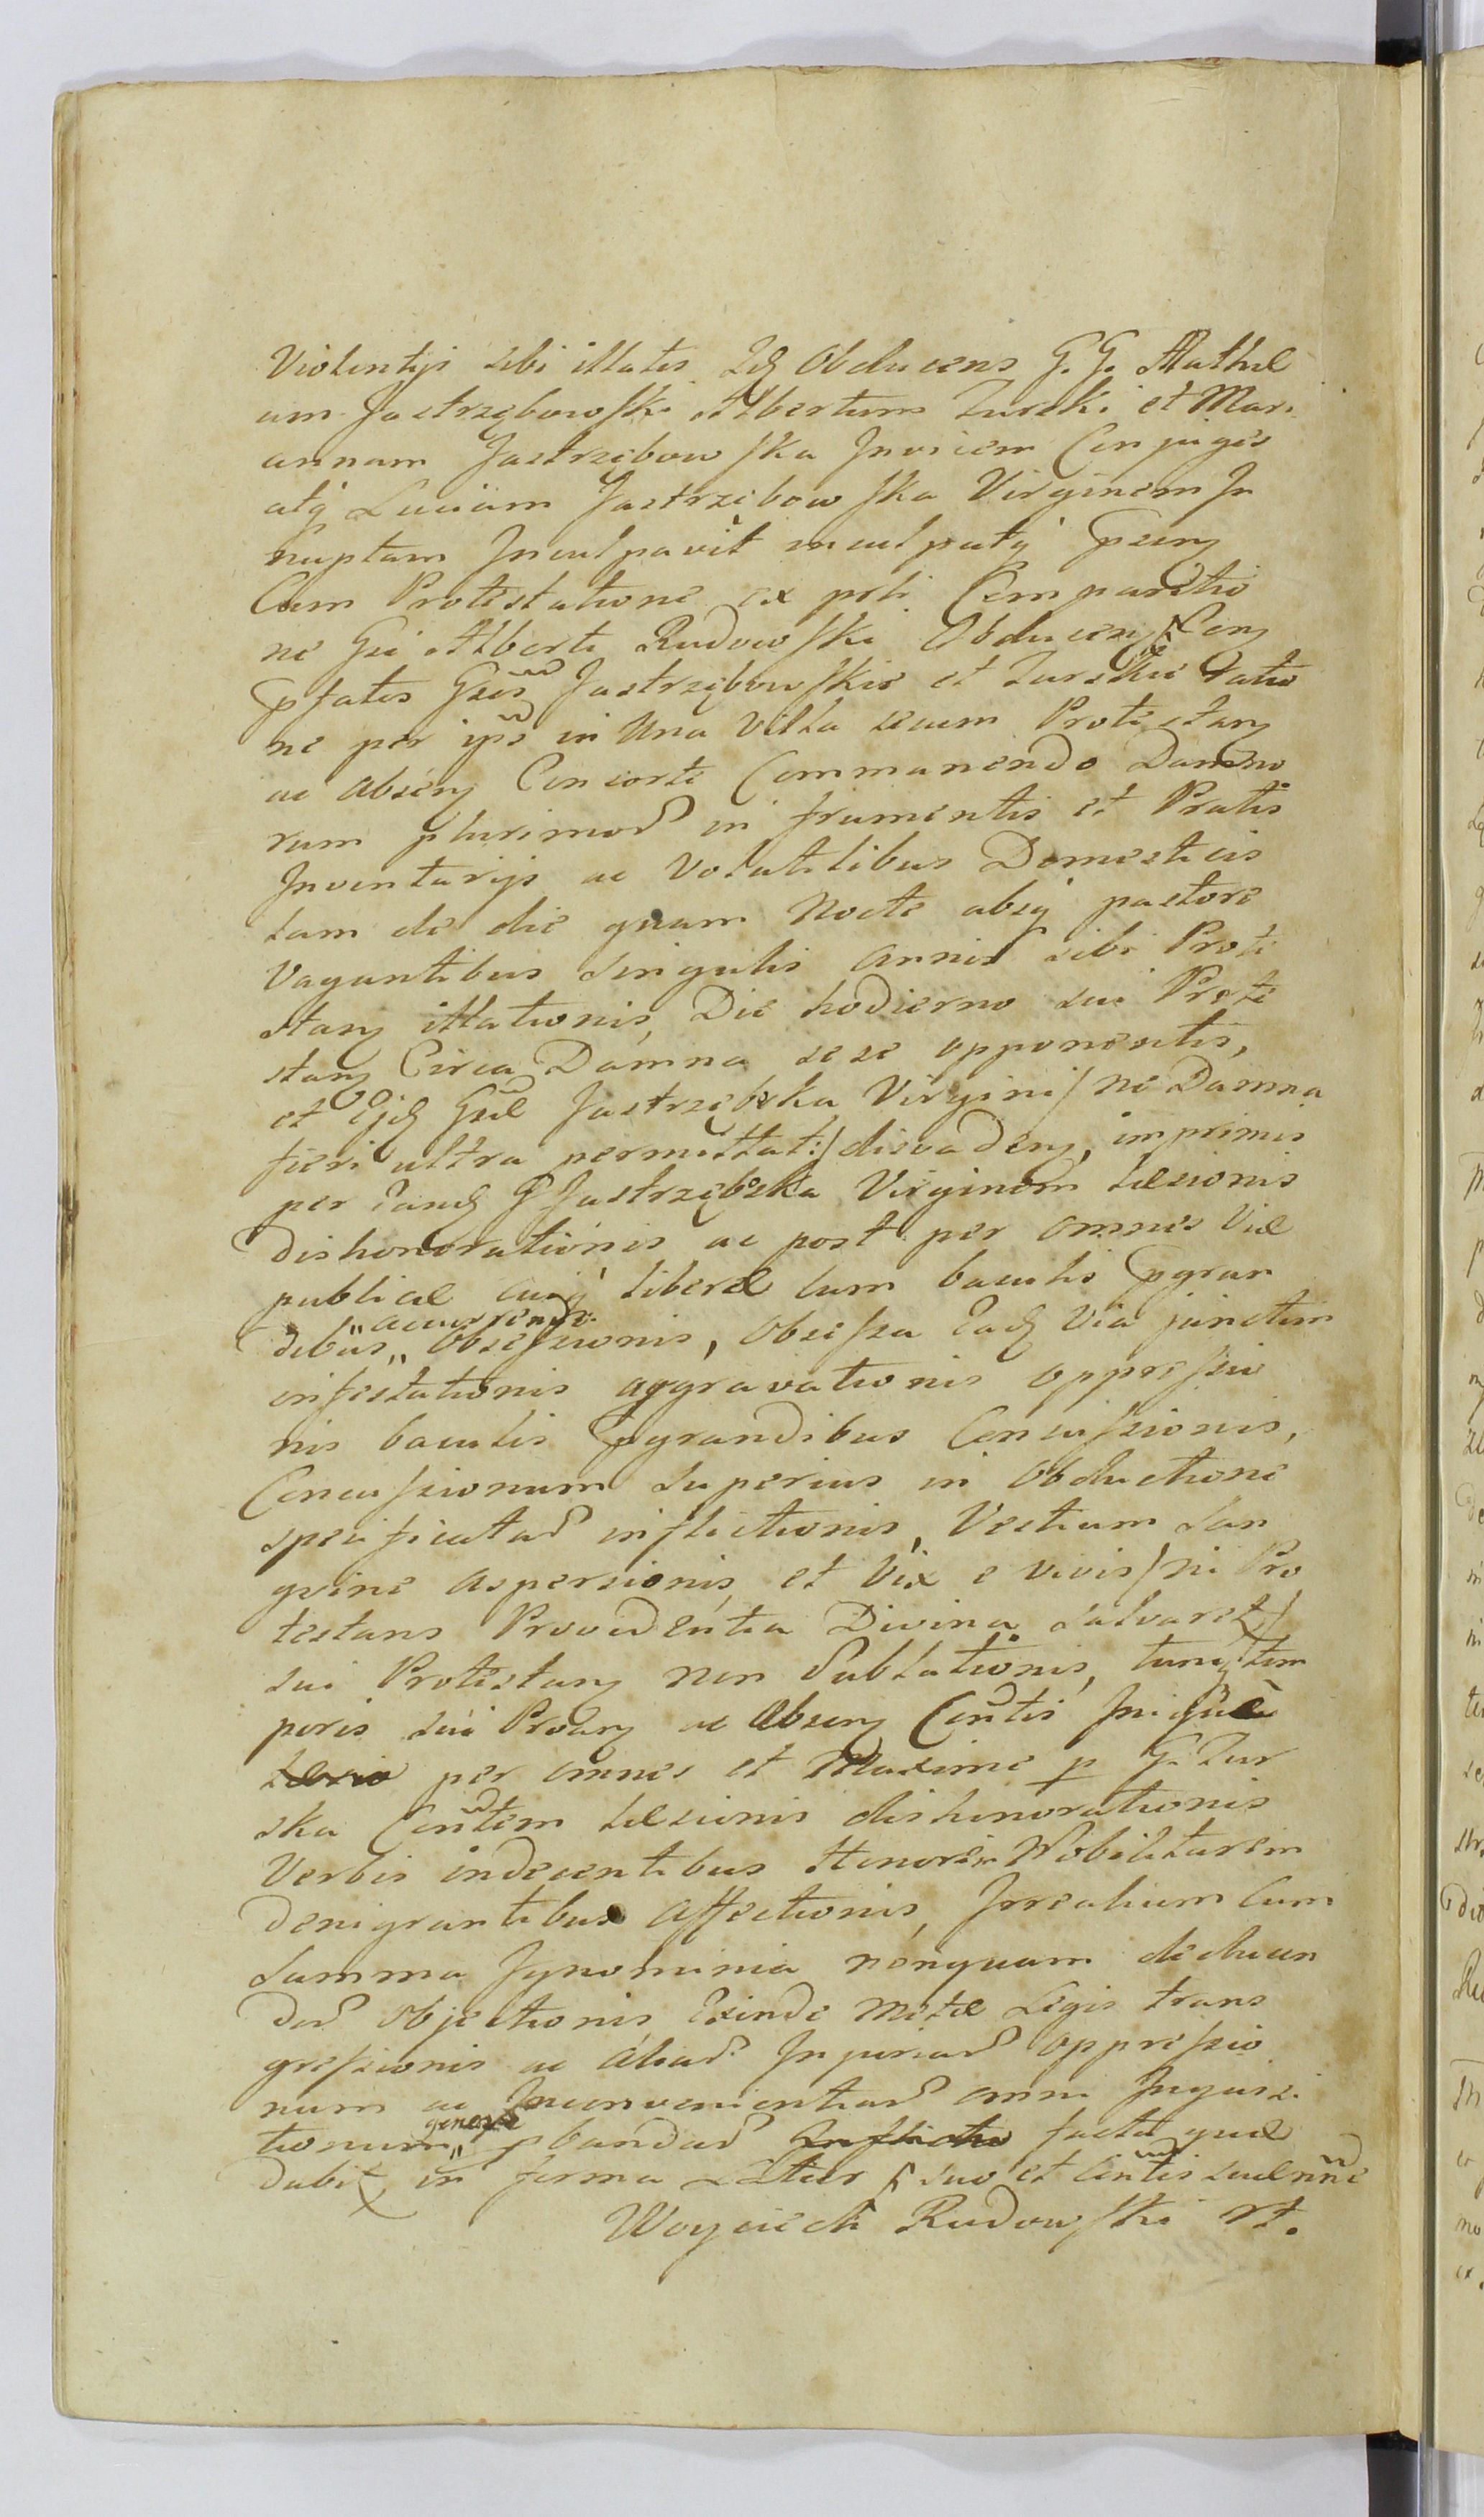 Violentijs sibi illatis Idq Obducens G. G. Mathæ
um Jastrzębowski Albertum Zurski et Mari
annam Jastrzębowska Invicem Conjuges
atq Luciam Jastrzębowska Virginem In
nuptam Inculpavit inculpatq
Cum Protestatione ex prti Comparitio
ne Gsi Alberti Rudowski Obducen
pfatos Gsos Jastrzębowskie et Zurskie ratio
ne per ipsos in Una Villa secum Protestan
ac absen Consorte Commanendo Damno
rum plurimor in frumentis et Pratis
Inventarijs ac Volatilibus Domesticis
tam de die quam Nocte absq pastore
Vagantibus Singulis annis sibi Prote
stan illationis, Die hodierno sui Prote
stan Circa Damna sese opponentis,
et Ejd Gsæ Jastrzębska Virgini / ne Damna
fieri ultra permittat :/ disvaden, imprimis
per Eand G Jastrzębska Virginem læsionis
dishonorationis ac post per omnes Viæ
publicæ cuiq liberæ cum baculis pgran
dibus „ accurrendo „ Obsessionis, Obsessa Ead Via junctim
infestationis aggravationis oppressio
nis baculis pgrandibus Concussionis,
Concussionum Superius in Obductione
specificatar inflictionis, Vestium San
gvine aspersionis, et Vix e vivis / ni Pro
testans Providentia Divina Salvaret /
sui Protestan non Sublationis, tunq tem
poris sui Protan ac Absen Contis
per omnes et Maxime p G. Zur
ska Contem læsionis dishonorationis
Verbis indecentibus Honorem Nobilitarem
denigrantibus Affectionis, Irrealium Cum
Summa Ignominia nonquam deducen
dar Objectionis, Exinde Metæ Legis trans
gressionis ac aliar Injuriar oppressio
num ac Inconvenientiar omni Inquisi
tionum „ genere pbandar Inflictio facta quæ
dabit in forma Latior suo et Contis suæ nne
Woyciech Rudowski M.